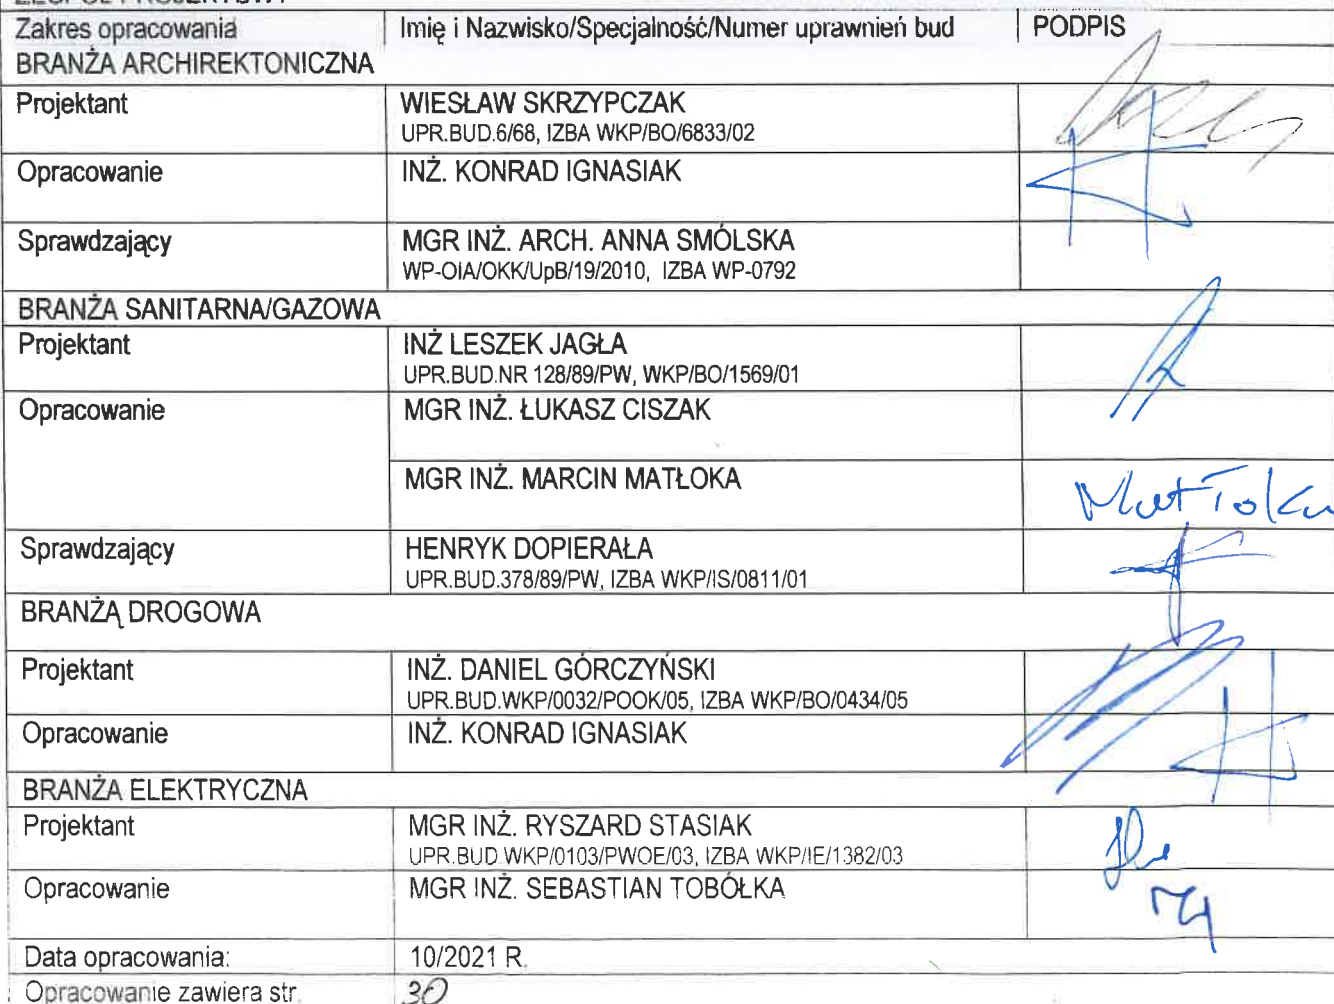 Zakres opracowania Imię i Nazwisko/Specjalność/Numer uprawnień bud PODPIS
BRANŻA ARCHIREKTONICZNA
Projektant WIESŁAW SKRZYPCZAK
UPR.BUD.6/68, IZBA WKP/BO/6833/02
Opracowanie INŻ. KONRAD IGNASIAK
Sprawdzający MGR INŻ. ARCH. ANNA SMÓLSKA
WP-OIA/OKK/UpB/19/2010, IZBA WP-0792
BRANŻA SANITARNA/GAZOWA
Projektant INŻ LESZEK JAGŁA
UPR.BUD.NR 128/89/PW, WKP/BO/1569/01
Opracowanie MGR INŻ. ŁUKASZ CISZAK
MGR INŻ. MARCIN MATŁOKA
Matłoka
Sprawdzający HENRYK DOPIERAŁA
UPR.BUD.378/89/PW, IZBA WKP/IS/0811/01
BRANŻĄ DROGOWA
Projektant INŻ. DANIEL GÓRCZYŃSKI
UPR.BUD.WKP/0032/POOK/05, IZBA WKP/BO/0434/05
Opracowanie INŻ. KONRAD IGNASIAK
BRANŻA ELEKTRYCZNA
Projektant MGR INŻ. RYSZARD STASIAK
UPR.BUD.WKP/0103/PWOE/03, IZBA WKP/IE/1382/03
Opracowanie MGR INŻ. SEBASTIAN TOBÓŁKA
Data opracowania: 10/2021 R.
Opracowanie zawiera str. 30